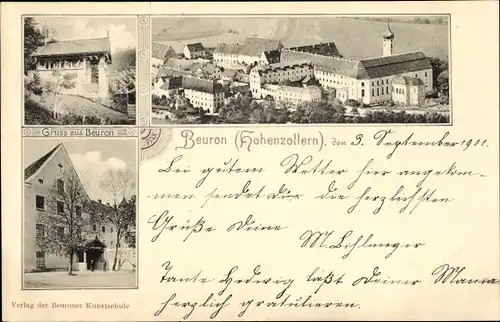 Gruss aus Beuron
PAX
Beuron (Hohenzollern), den 3. September 1901.
Bei gutem Wetter hier angekom-
men sendet Dir die herzlichsten
Grüße Deine
M. Bihlmeyer
Tante Hedwig läßt Deiner Mama
herzlich gratulieren.
Verlag der Beuroner Kunstschule